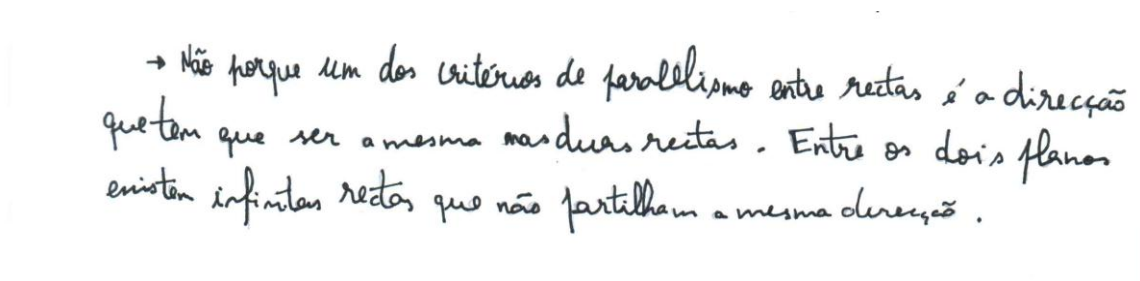 → Não porque um dos critérios de paralelismo entre rectas é a direcção
que tem que ser a mesma nas duas rectas. Entre os dois planos
existem infinitas rectas que não partilham a mesma direcção.